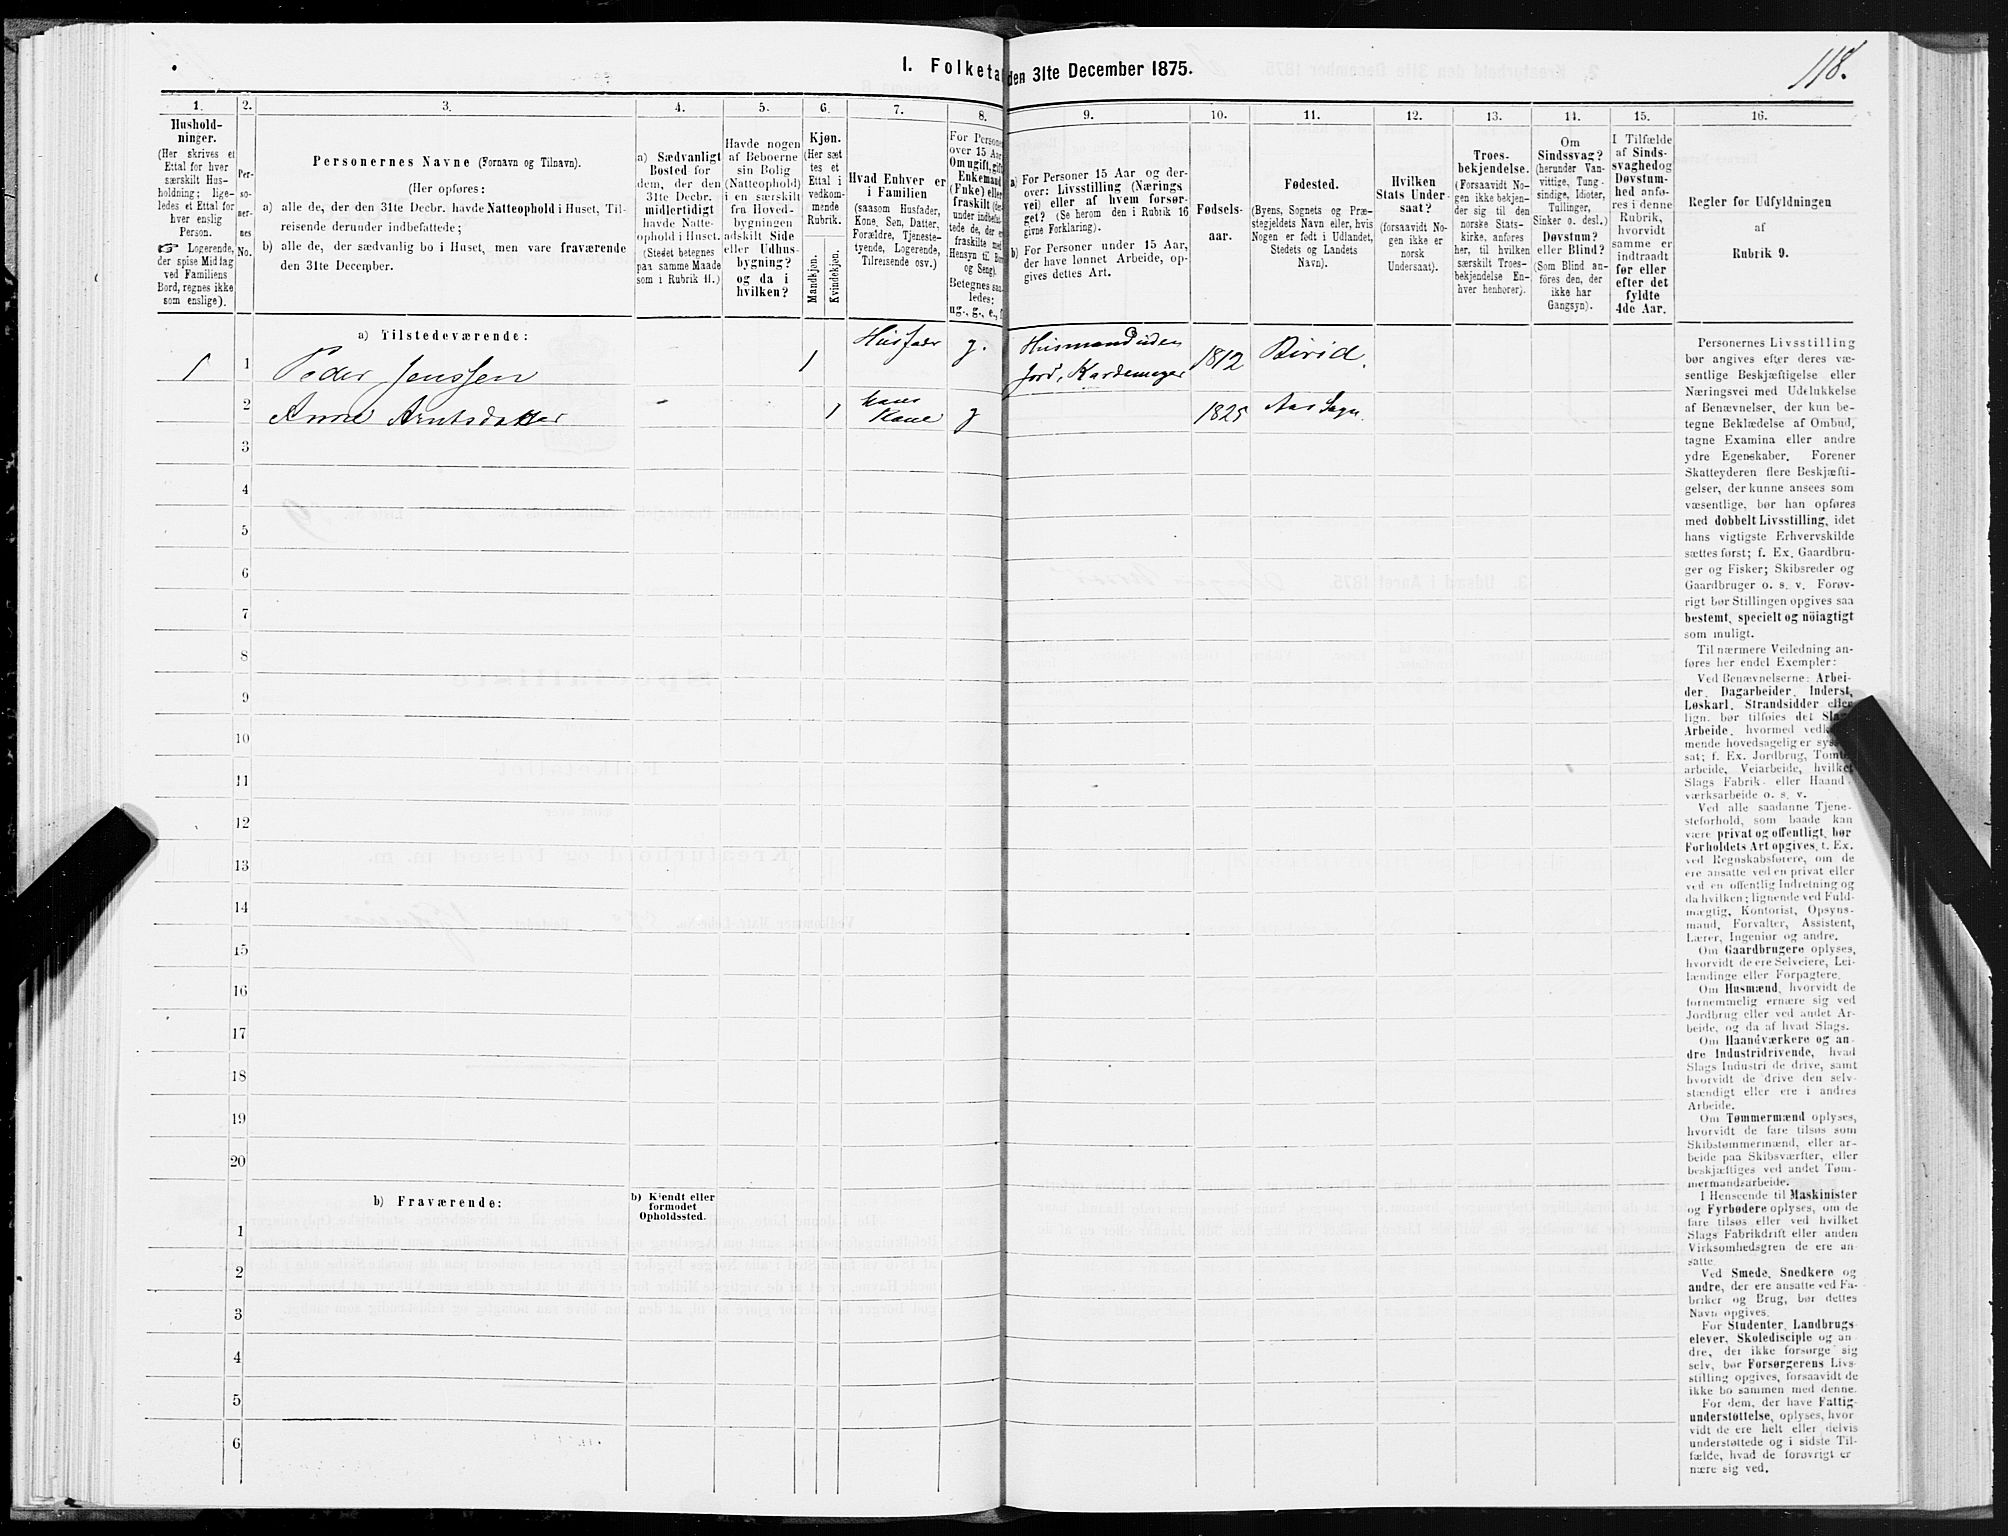 118.
1. Folketa den 31te December 1875.
1. 2. 3. 4. 5. 6. 7. 8. 9. 10. 11. 12. 13. 14. 15. 16.
Hushold-
ninger.
(Her skrives et
Ettal for hver
særskilt Hus-
holdning; lige-
ledes et Ettal for
hver enslig
Person.
☞ Logerende,
der spise Middag
ved Familiens
Bord, regnes ikke
som enslige).
Per-
so-
ner-
nes
No.
Personernes Navne (Fornavn og Tilnavn).
(Her opføres:
a) alle de, der den 31te Decbr. havde Natteophold i Huset, Til-
reisende derunder indbefattede;
b) alle de, der sædvanlig bo i Huset, men vare fraværende
den 31te December.
a) Sædvanligt
Bosted for
dem, der den
31te Decbr.
midlertidigt
havde Natte-
ophold i Huset.
(Stedet betegnes
paa samme Maade
som i Rubrik 11.)
Havde nogen
af Beboerne
sin Bolig
(Natteophold)
i en særskilt
fra Hoved-
bygningen
adskilt Side
eller Udhus-
bygning?
og da i
hvilken?
Kjøn.
(Her sæt
tes et
Ettal i
vedkom-
mende
Rubrik.
Mandkjøn.
Kvindekjøn.
Hvad Enhver er
i Familien
(saasom Husfader,
Kone, Søn, Datter,
Forældre, Tjeneste-
tyende, Logerende,
Tilreisende osv.)
For Persone
over 15 Aar
Om ugift, gift
Enkemand
(Enke) eller
fraskilt (der-
under indbefat-
tede de, der er
fraskilte med
Hensyn til Bor
og Seng).
Betegnes saa-
ledes:
ug., g., e., f
a) For Personer 15 Aar og der-
over: Livsstilling (Nærings
vei) eller af hvem forsør-
get? (Se herom den i Rubrik 16
givne Forklaring).
b) For Personer under 15 Aar,
der have lønnet Arbeide, op-
gives dettes Art.
Fødsels-
aar.
Fødested.
(Byens, Sognets og Præ-
stegjeldets Navn eller, hvis
Nogen er født i Udlandet,
Stedets og Landets
Navn).
Hvilken
Stats Under-
saat?
(forsaavidt No-
gen ikke er
norsk
Undersaat).
Troes-
bekjendelse.
(Forsaavidt No-
gen ikke bekjen-
der sig til den
norske Stats-
kirke, anføres
her, til hvilken
særskilt Troes-
bekjendelse En-
hver henhører).
Om
Sindssvag?
(herunder Van-
vittige, Tung-
sindige, Idioter,
Tullinger,
Sinker o. desl.)
Døvstum?
eller Blind?
(Som Blind an-
føres den, der
ikke har
Gangsyn).
I Tilfælde
af Sinds-
svaghed og
Døvstum-
hed anfø-
res i denne
Rubrik,
hvorvidt
samme er
indtraadt
før eller
efter det
fyldte
4de Aar.
Regler for Udfyldningen
af
Rubrik 9.
a) Tilstedeværende:
1 1 Peder Jenssen 1 Husfader g. Husmand uden
Jord, Kardemager 1812 Birid.
2 Anne Arntsdatter 1 hans
Kone g 1825 Aas Sogn.
3
4
5
6
7
8
9
10
11
12
13
14
15
16
17
18
19
20
b) Fraværende:
b) Kjendt eller
formodet
Opholdssted.
1
2
3
4
5
6
Personernes Livsstilling
bør angives efter deres væ-
sentlige Beskjæftigelse eller
Næringsvei med Udelukkelse
af Benævnelser, der kun be-
tegne Beklædelse af Ombud,
tagne Examina eller andre
ydre Egenskaber. Forener
Skatteyderen flere Beskjæfti-
gelser, der kunne ansees som
væsentlige, bør han opføres
med dobbelt Livsstilling, idet
hans vigtigste Erhvervskilde
sættes først; f. Ex. Gaardbru-
ger og Fisker; Skibsreder og
Gaardbruger o. s. v. Forøv-
rigt bør Stillingen opgives saa
bestemt, specielt og nöiagtigt
som muligt.
Til nærmere Veiledning an-
føres her endel Exempler:
Ved Benævnelserne: Arbei-
der, Dagarbeider, Inderst,
Løskarl, Strandsidder eller
lign. bør tilføies det Slags
Arbeide, hvormed vedkom-
mende hovedsagelig er syssel-
sat; f. Ex. Jordbrug, Tomte-
arbeide, Veiarbeide, hvilket
Slags Fabrik- eller Haand-
værksarbeide o. s. v.
Ved alle saadanne Tjene-
steforhold, som baade kan
være privat og offentligt, bør
Forholdets Art opgives, t. Ex.
ved Regnskabsførere, om de
ere ansatte ved en privat eller
ved en offentlig Indretning og
da hvilken; lignende ved Fuld-
mægtig, Kontorist, Opsyns-
mand, Forvalter, Assistent,
Lærer, Ingeniør og andre.
Om Gaardbrugere oplyses,
hvorvidt de ere Selveiere, Lei-
lændinge eller Forpagtere.
Om Husmænd, hvorvidt de
fornemmelig ernære sig ved
Jordbrug eller ved andet Ar-
beide, og da af hvad Slags.
Om Haandværkere og an-
dre Industridrivende, hvad
Slags Industri de drive, samt
hvorvidt de drive den selv-
stændigt eller ere i andres
Arbeide.
Om Tømmermænd oplyses,
hvorvidt de fare tilsøs som
Skibstømmermænd, eller ar-
beide paa Skibsværfter, eller
beskjæftiges ved andet Tøm-
mermandsarbeide.
I Henseende til Maskinister
og Fyrbødere oplyses, om de
fare tilsøs eller ved hvilket
Slags Fabrikdrift eller anden
Virksomhedsgren de ere an-
satte.
Ved Smede, Snedkere og
andre, der ere ansatte ved Fa-
briker og Brug, bør dettes
Navn opgives.
For Studenter, Landbrugs-
elever, Skoledisciple og an-
dre, der ikke forsørge sig
selv, bør Forsørgerens Livs-
stilling opgives, forsaavidt de
ikke bo sammen med denne.
For dem, der have Fattig-
understøttelse, oplyses, hvor-
vidt de ere helt eller delvis
understøttede og i sidste Til-
fælde, hvad de forøvrigt er
nære sig ved.